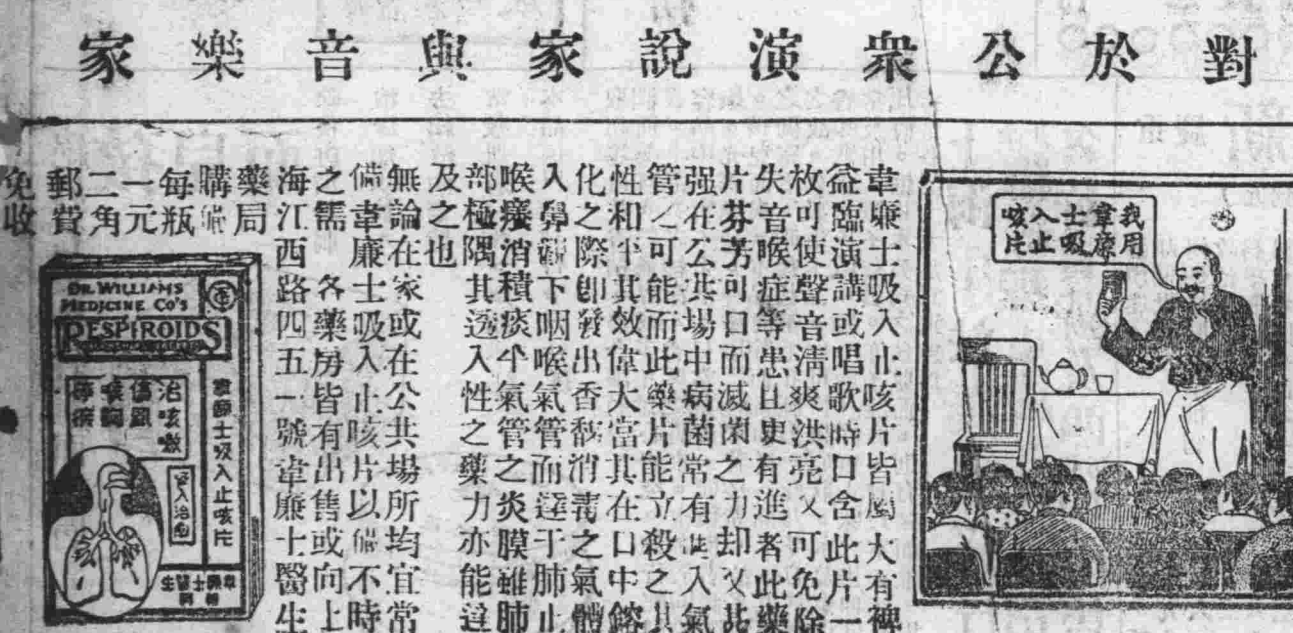 對於公衆演說家與音樂家
我用
韋廉
士吸
入止
咳片
韋廉士吸入止咳片皆屬大有裨
益臨演講或唱歌時口含此片一
枚可使聲音清爽洪亮又可免除
失音喉症等患且更有進者此藥
片芬芳可口而滅菌之力却又甚
强在公共場中病菌常有進入氣
管之可能而此藥片能立殺之其
性和平其效偉大當其在口中鎔
化之際卽發出香馥消毒之氣體
入鼻竅下咽喉氣管而達于肺止
喉癢消積痰平氣管之炎膜雖肺
部極隅其透入性之藥力亦能達
及之也
無論在家或在公共場所均宜常
備韋廉士吸入止咳片以備不時
之需 各藥房皆有出售或向上
海江西路四五一號韋廉士醫生
藥局
購備
每瓶
一元
二角
郵費
免收
DR. WILLIAMS
MEDICINE CO'S
RESPIROIDS
韋廉士吸入止咳片
治咳嗽
傷風
喉痛
等疾